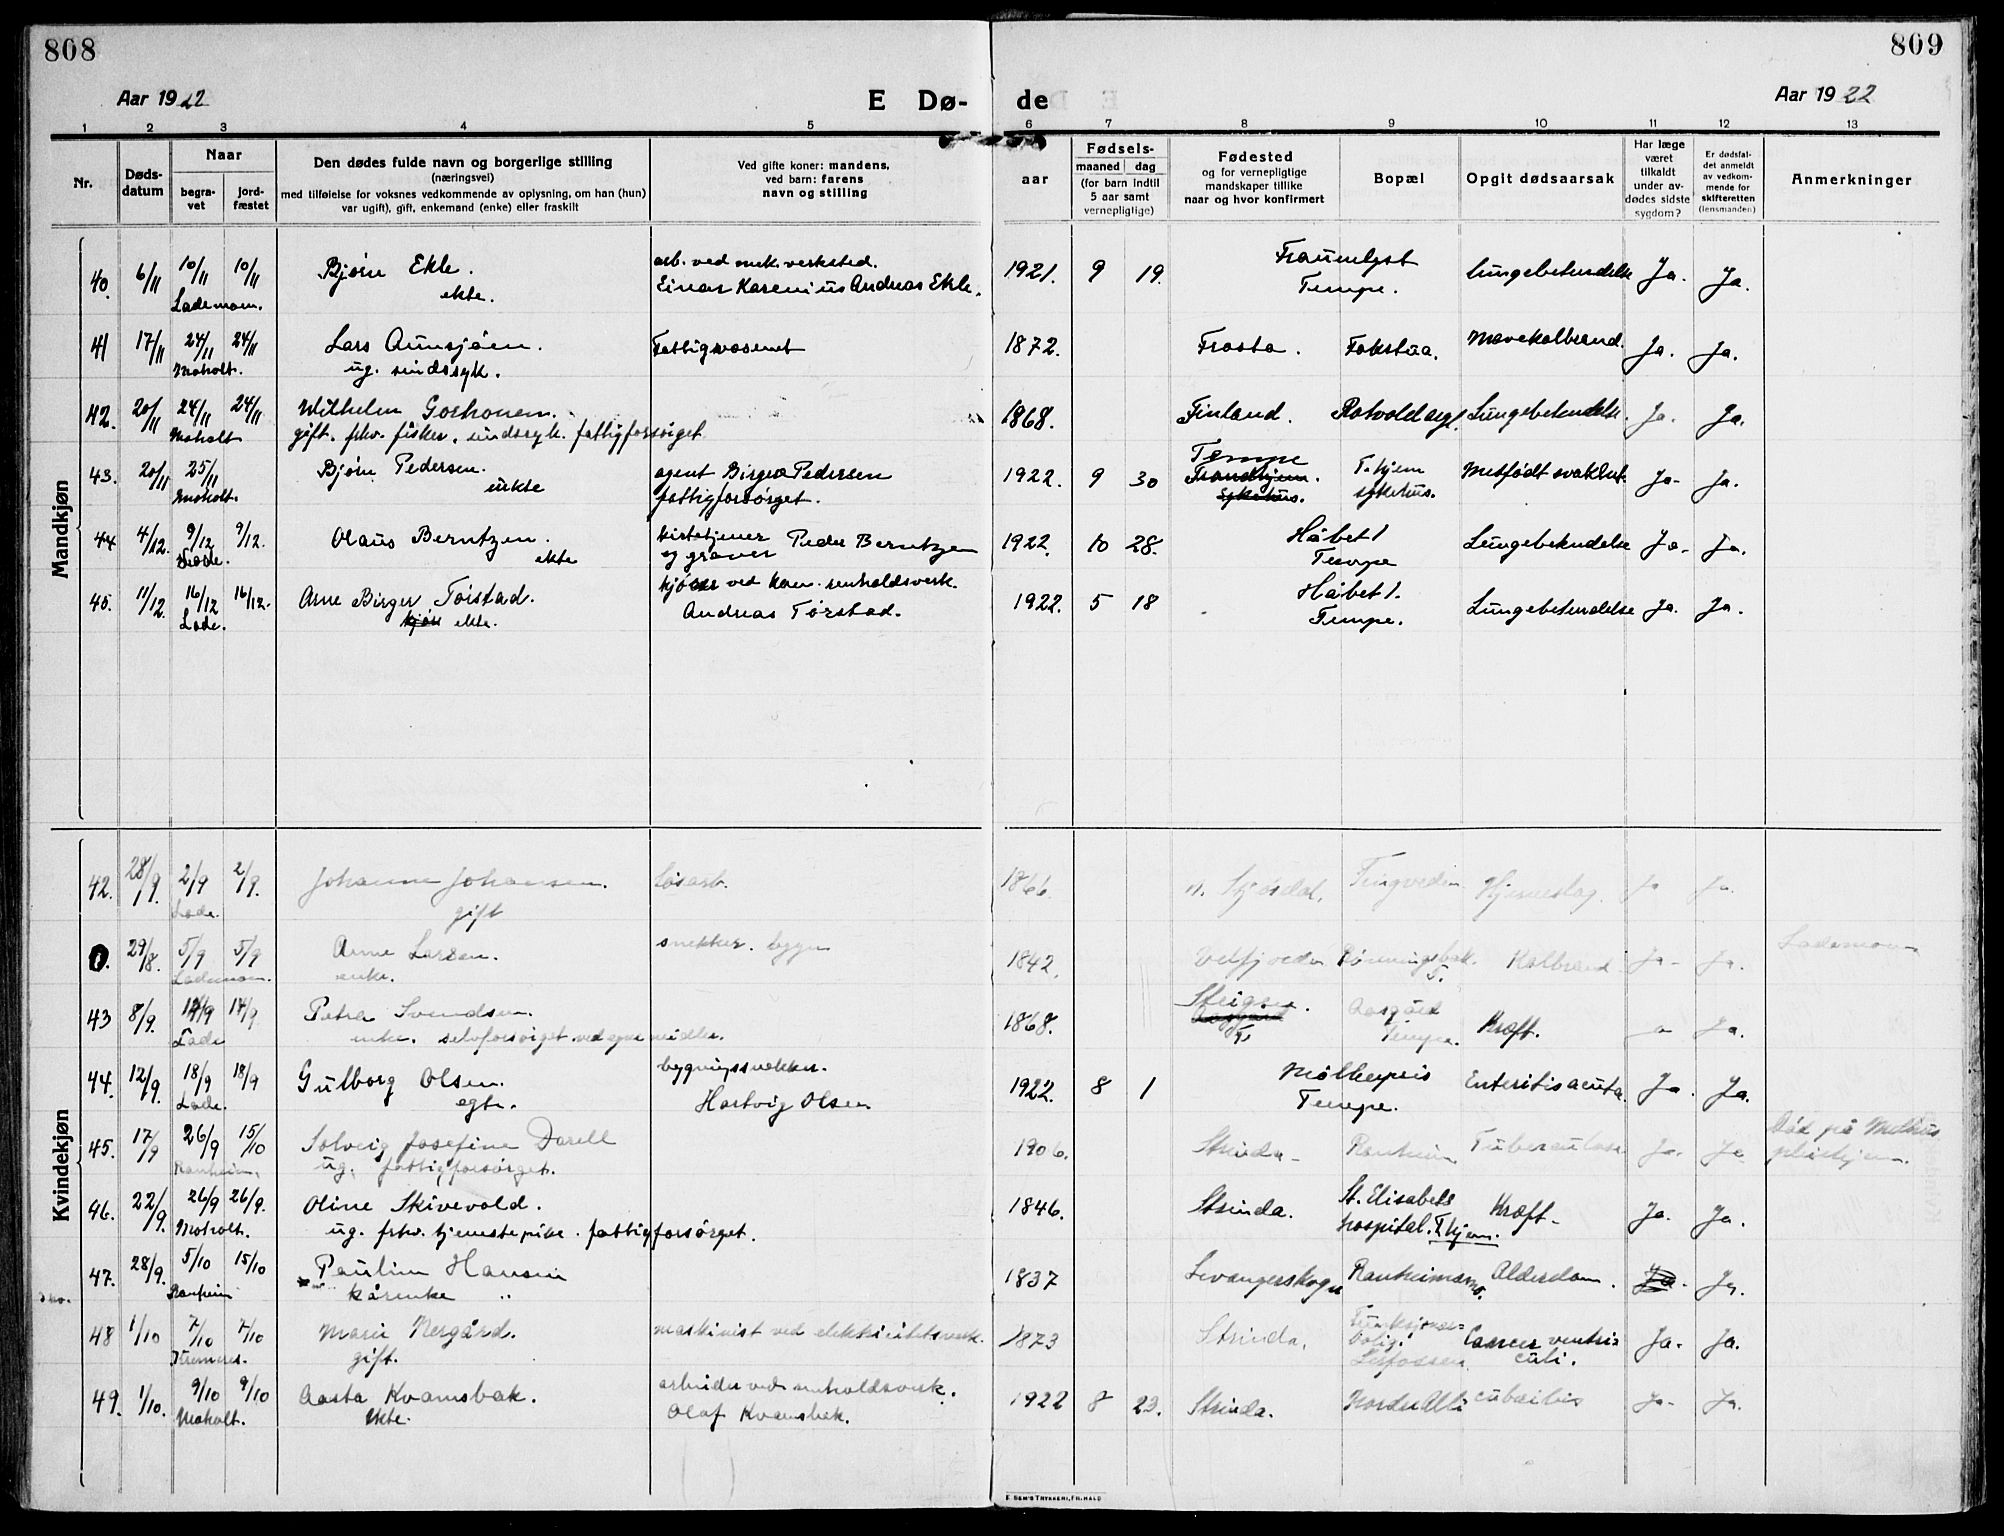 808
809
Aar 1922
E Dø-
de
Aar 1922
1 2 3 4 5 6 7 8 9 10 11 12 13
Nr.
Døds-
datum
Naar
begra-
vet
jord-
fæstet
Den dødes fulde navn og borgerlige stilling
(næringsvei)
med tilføielse for voksnes vedkommende av oplysning, om han (hun)
var ugift), gift, enkemand (enke) eller fraskilt
Ved gifte koner: mandens,
ved barn: farens
navn og stilling
aar
Fødsels-
maaned dag
(for barn indtil
5 aar samt
vernepligtige)
Fødested
og for vernepligtige
mandskaper tillike
naar og hvor konfirmert
Bopæl
Opgit dødsaarsak
Har læge
været
tilkaldt
under av-
dødes sidste
sygdom?
Er dødsfal-
det anmeldt
av vedkom-
mende for
skifteretten
(lensmanden)
Anmerkninger
Mandkjøn
40. 6/11 10/11 10/11 Bjørn Ekle. arb. ved mek. verksted. 1921. 9 19. Lungebetendelse Ja. Ja.
Lademoen. ekte. Einar Karenius Andreas Ekle. Tempe.
41 17/11 24/11 24/11 Lars Aunsjøen. Fattigvæsenet 1872. Frosta. Fokstua. Mavekolbrand. Ja. Ja.
Moholt. ug. sindssyk.
42. 20/11 24/11 24/11 Wilhelm 1868. Finland. Rotvold asyl. Lungebetendelse. Ja. Ja.
Moholt gift. fhv. fisker. sindssyk. fattigforsørget
43. 20/11 25/11 Bjørn Pedersen. agent Birger Pedersen 1922. 9 30 Tempe Trondhjem. T.hjem Medfødt svakhet. Ja- Ja.
Moholt. uekte fattigforsørget. sykehus. sykehus.
44 4/12. 9/12 9/12. Olaus Berntzen. kirketjener Peder Berntzen 1922. 10 28. Håbet 1 Lungebetendelse Ja- Ja.
Lade. ekte og graver Tempe
45. 11/12. 16/12 16/12. Arne Birger Tørstad. kjører ved kom. renholdsverk. 1922. 5 18 Håbet 1. Lungebetendelse Ja. Ja.
Lade. ekte. Andreas Tørstad. Tempe.
Kvindekjøn
42. 28/9. 2/9 2/9. Johanne Johansen. løsarb. 1866. Tingveden Hjerneslag. Ja Ja.
Lade. gift
0. 29/8. 5/9 5/9 Anne Larsen. snekker. 1842. Kolbrand Ja- Ja. Lademoen
Lademoen. enke.
43 8/9. 14/9 14/9 Petra Svendsen. 1868. Aasgård Kræft. Ja.
Lade enke. selvforsørget ved egne midler. Tempe.
44. 12/9. 18/9 18/9 Gulborg Olsen. bygningssnekker. 1922. 8 1 Møllenpris Enteritis acuta. Ja. Ja.
Lade. egte. Hartvig Olsen Tempe.
45. 17/9 26/9 15/10 Solveig Josefine Dorell 1906. Strinda- Ranheim Tuberculose Ja. Ja Død på Melhus
Ranheim. ug. fattigforsørget. pleiehjem.
46. 22/9. 26/9 26/9. Oline Skivevold. 1846. Strinda. St. Elisabets Kræft- Ja. Ja.
Moholt. ug. fhv. tjenestepike. fattigforsørget. hospital. T.hjem.
47. 28/9. 5/10 15/10 Pauline Hansen 1837 Levangerskogn Ranheimsmo. Alderdom. Ja. Ja.
Ranheim kårenke
48 1/10 7/10 7/10 Marie Nergård. maskinist ved elektricitetsverk. 1873 Strinda. Funksjonær- Cancer ventri- Ja. Ja.
gift. bolig. culi.
Lerfossen.
49. 1/10. 9/10 9/10 Aasta Kvamsbak. arbeider ved renholdsverk. 1922 8 23. Strinda. Nordre Ja- Ja.
Moholt. ekte. Olaf Kvamsbak.